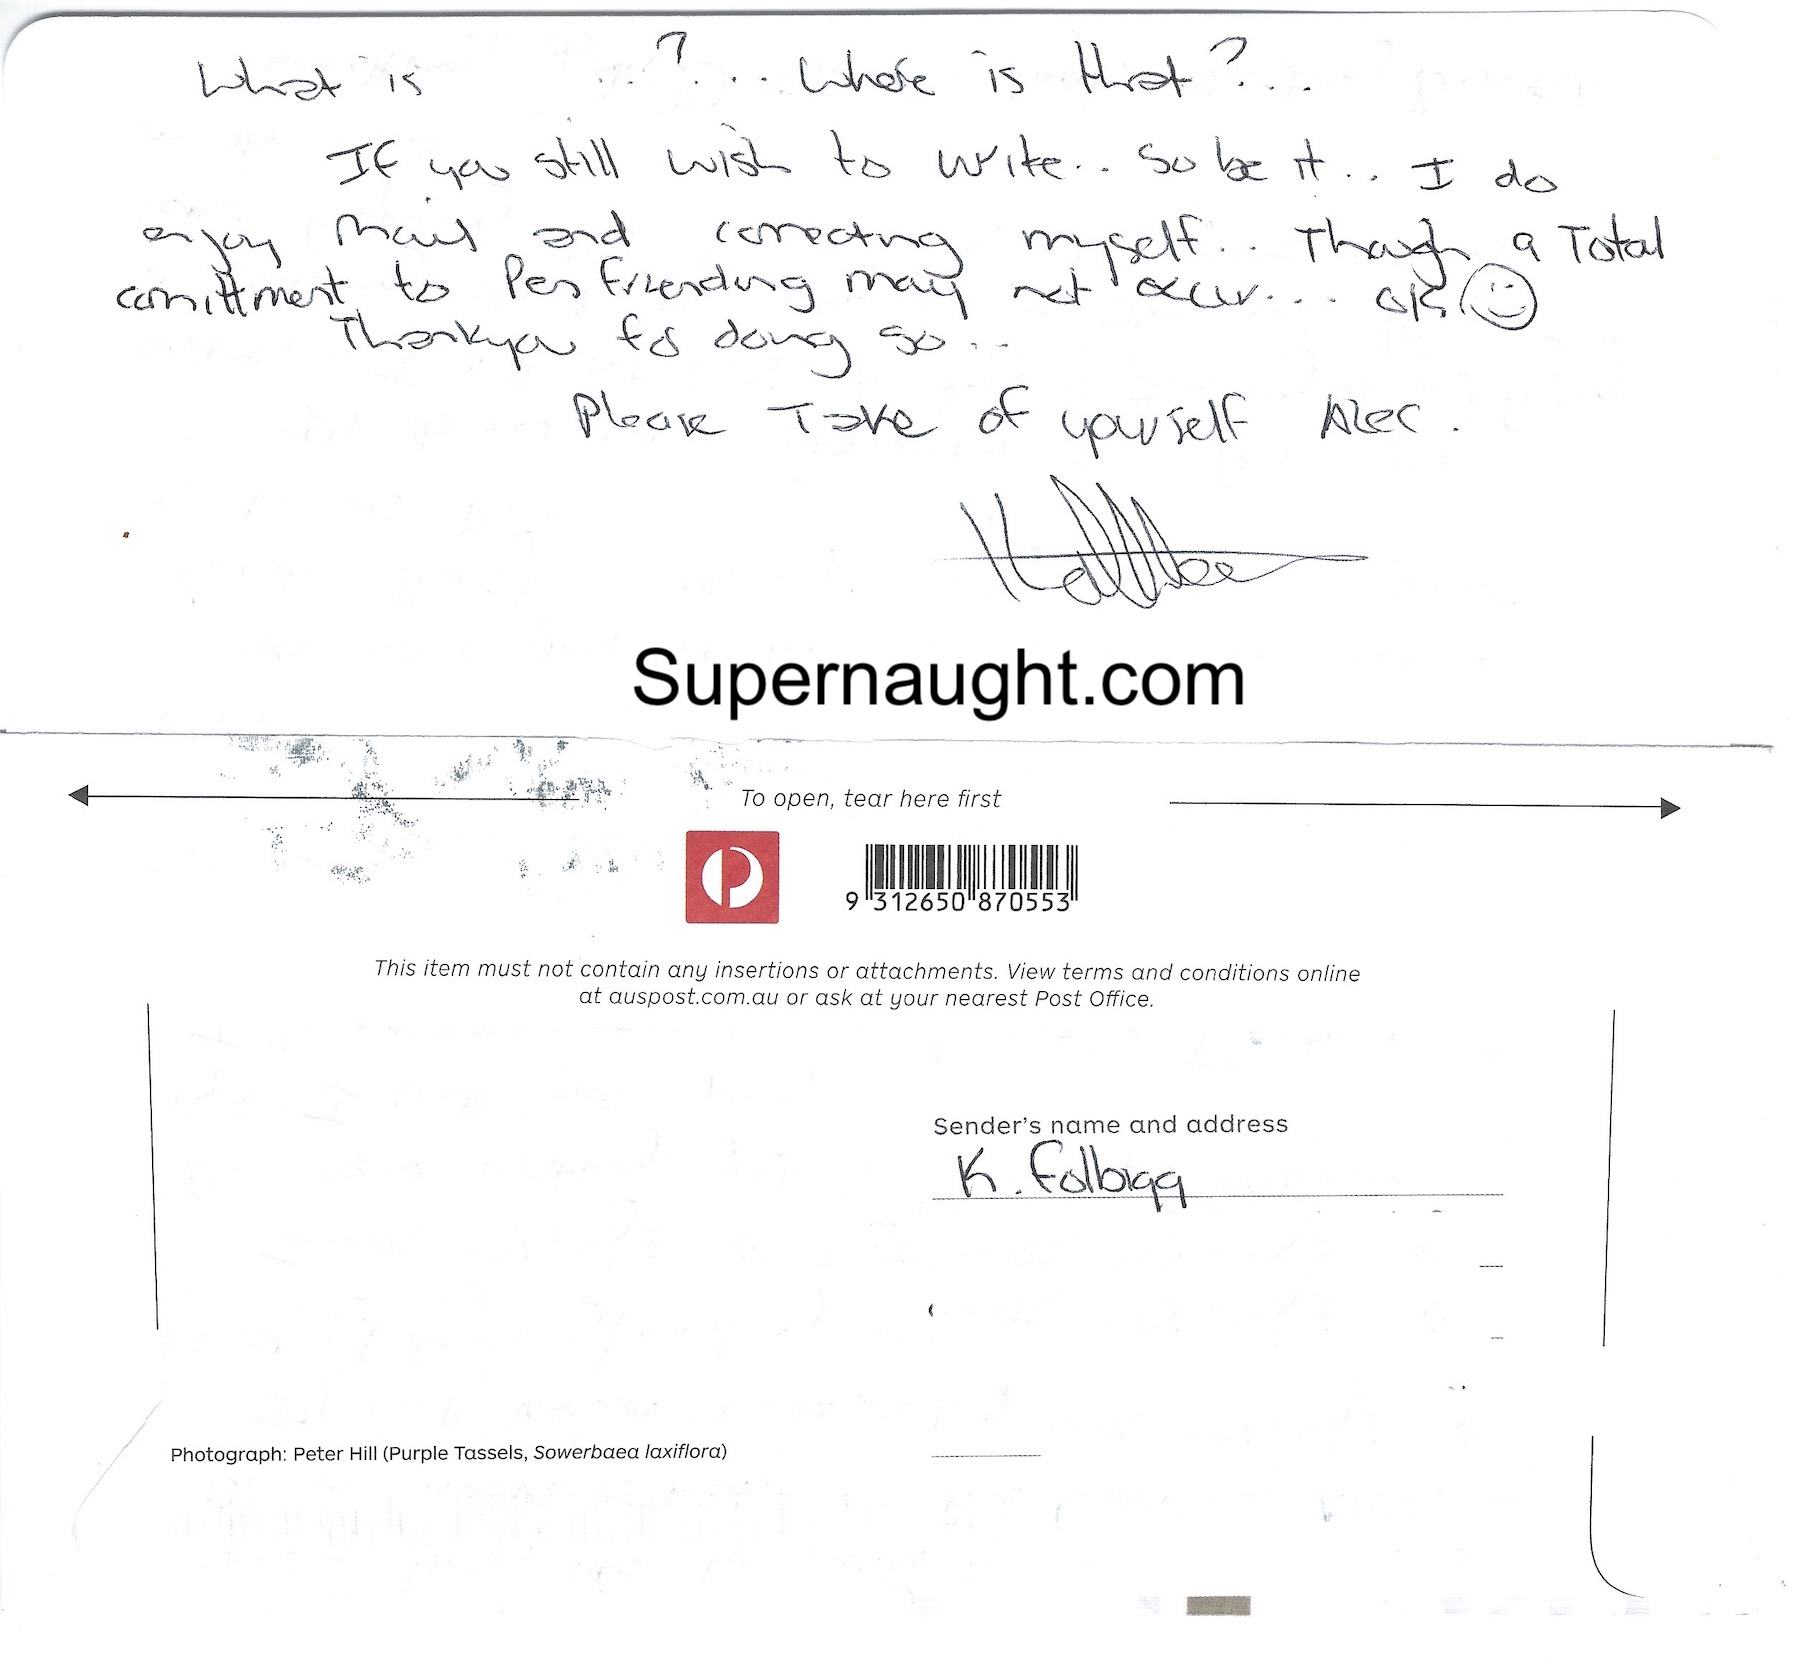 What is ..?... Where is that?...
If you still wish to write.. So be it.. I do
enjoy mail and correcting myself.. Though a Total
comittment to Pen friending may not occur... ok ☺
Thankyou for doing so...
Please Take of yourself Alec.
Kathleen
Supernaught.com
To open, tear here first
9 312650 870553
This item must not contain any insertions or attachments. View terms and conditions online
at auspost.com.au or ask at your nearest Post Office.
Sender's name and address
K. Folbigg
Photograph: Peter Hill (Purple Tassels, Sowerbaea laxiflora)